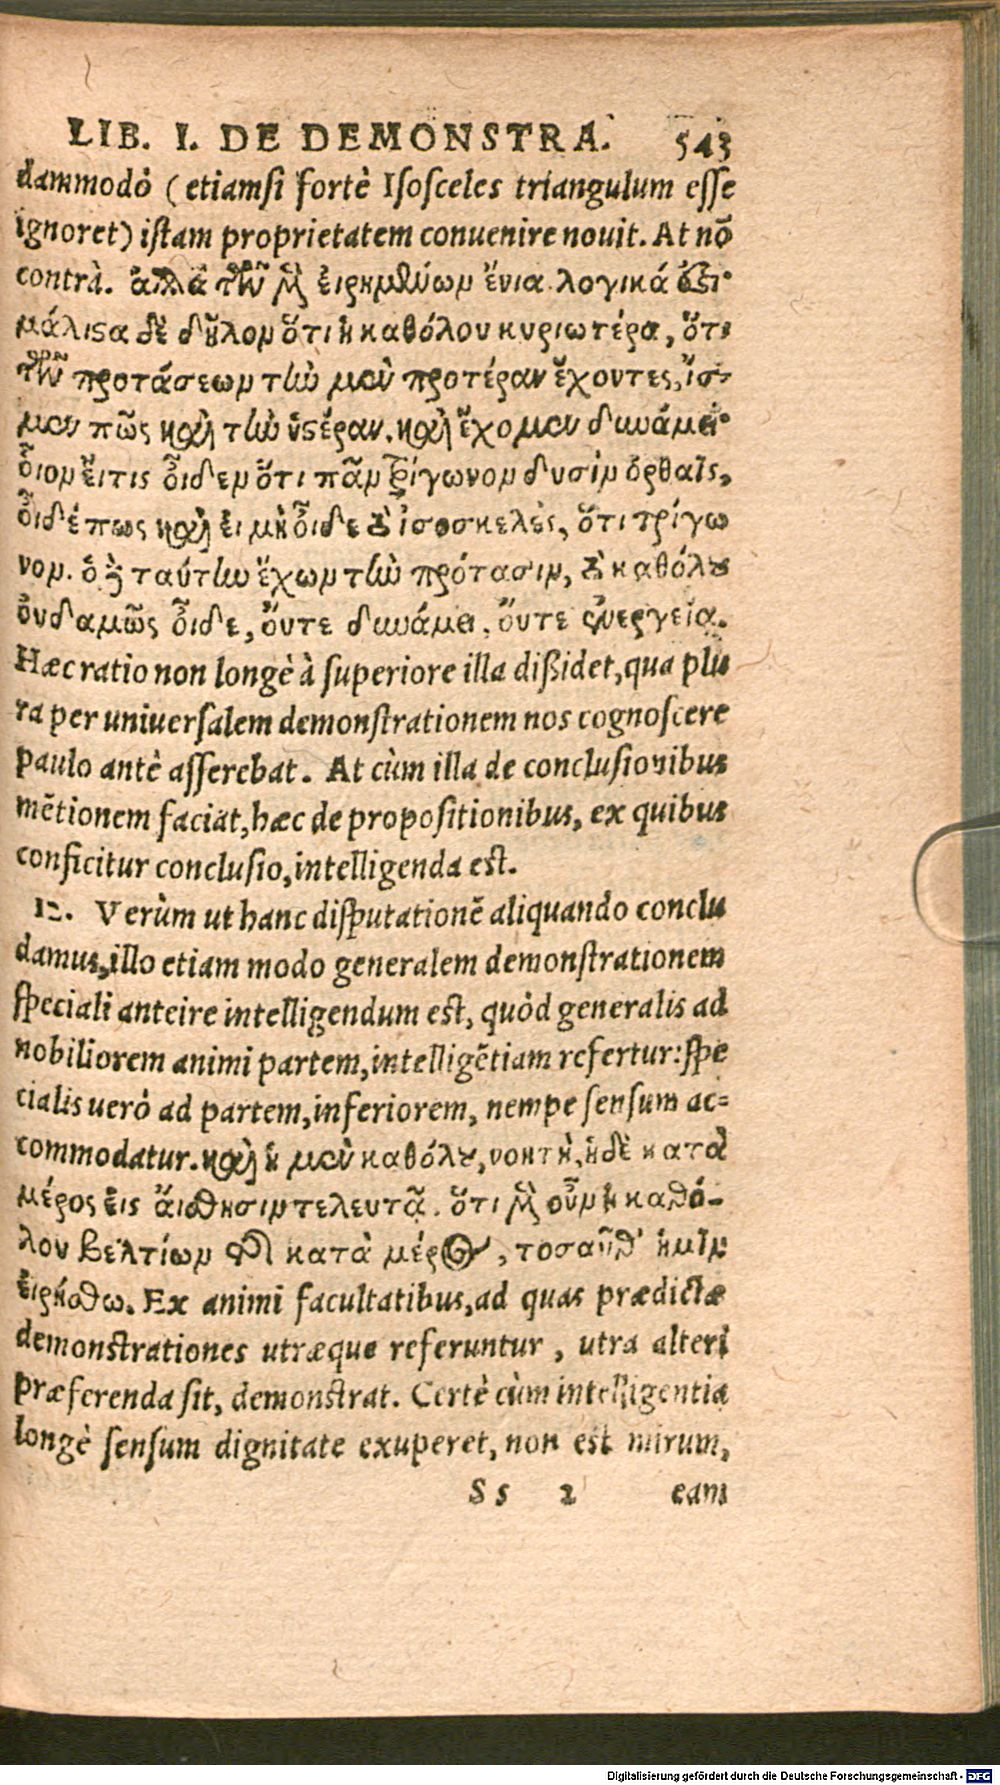 LIB. I. DE DEMONSTRA. 543
dammodò (etiamsi fortè Isosceles triangulum esse
ignoret) istam proprietatem conuenire nouit. At nō
contrà. ἀλλὰ τῶν μὲν ἐιρημλύων ἔνια λογικά ἐστι·
μάλιϛα δὲ δῆλον ὅτι ἡ καθόλου κυριωτέρα, ὅτι
τῶν προτάσεων τὼ μὲν προτέραν ἔχοντες, ἴσ-
μεν πῶς καὶ τὼ ὑϛέραν, καὶ ἔχομεν δυνάμει·
ὅιον ἔιτις ὅιδεν ὅτι πᾶν τρίγωνον δυσὶν ὀρθαῖς,
ὅιδέ πως καὶ ἐι μὴ ὅιδε τὸ ἰσοσκελὲς, ὅτι τρίγω
νον. ὁ δὲ ταύτω ἔχων τὼ πρότασιν, τὸ καθόλȣ
ὀυδαμῶς ὅιδε, ὄυτε δυνάμει, ὄυτε ἐνεργεία.
Hæc ratio non longè à superiore illa dißidet, qua plu
ra per uniuersalem demonstrationem nos cognoscere
paulo antè asserebat. At cùm illa de conclusionibus
mētionem faciat, hæc de propositionibus, ex quibus
conficitur conclusio, intelligenda est.
12. Verùm ut hanc disputationē aliquando conclu
damus, illo etiam modo generalem demonstrationem
speciali anteire intelligendum est, quòd generalis ad
nobiliorem animi partem, intelligētiam refertur: spe
cialis uerò ad partem, inferiorem, nempe sensum ac=
commodatur. καὶ ἡ μὲν καθόλȣ, νοητὴ, ἡ δὲ κατὰ
μέρος ἐις ἄισθησιν τελευτᾷ. ὅτι μὲν οὖν ἡ καθό-
λου βελτίων τῆς κατὰ μέρος, τοσαῦθ' ἡμῖν
ἐιρήσθω. Ex animi facultatibus, ad quas prædictæ
demonstrationes utræque referuntur, utra alteri
præferenda sit, demonstrat. Certè cùm intelligentia
longè sensum dignitate exuperet, non est mirum,
Ss 2 eam
Digitalisierung gefördert durch die Deutsche Forschungsgemeinschaft - DFG